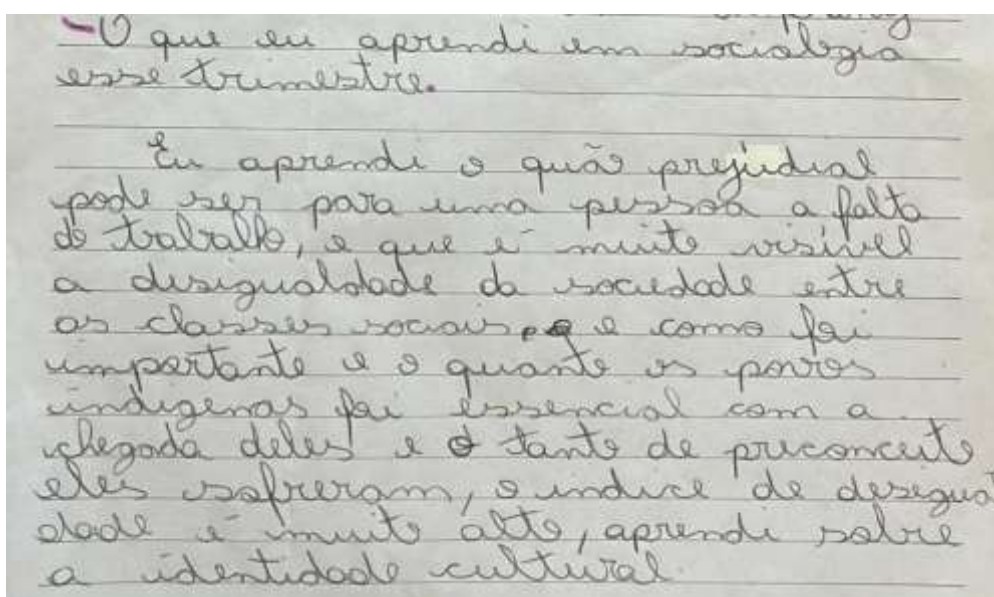 -O que eu aprendi em sociologia
esse trimestre.
Eu aprendi o quão prejudial
pode ser para uma pessoa a falta
do trabalho, e que é muito visível
a desigualdade da sociedade entre
as classes sociais, e como foi
importante e o quanto os povos
indígenas foi essencial com a
chegada deles e o tanto de preconceito
eles sofreram, o indice de desigual
dade é muito alto, aprendi sobre
a identidade cultural.